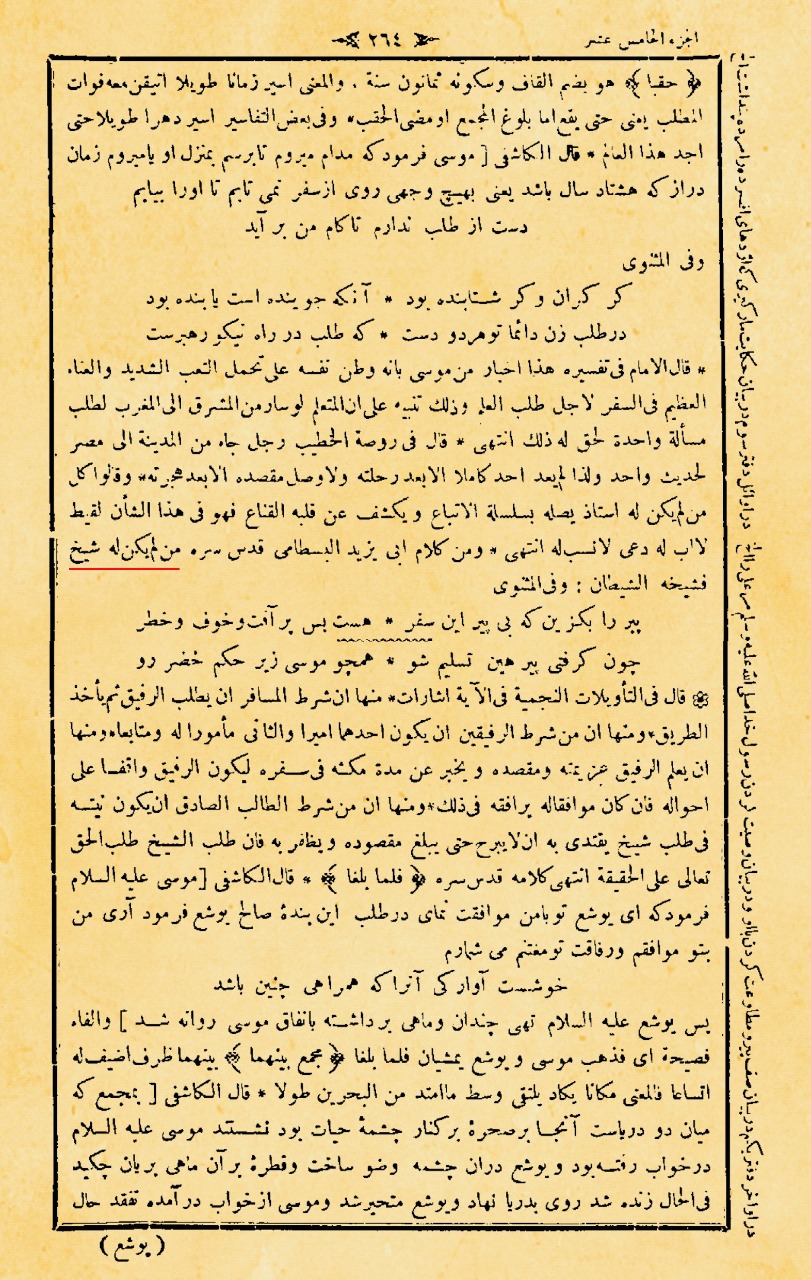 الجزء الخامس عشر
٢٦٤
﴿ حقبا ﴾ هو بضم القاف وسكونه ثمانون سنة . والمعنى اسير زمانا طويلا اتيقن معه فوات
المطلب يعنى حتى يقع اما بلوغ المجمع او مضى الحقب * وفى بعض التفاسير اسير دهرا طويلا حتى
اجد هذا العالم * قال الكاشفى [ موسى فرمودكه مدام ميروم تابرسم بمنزل او ياميروم زمان
درازكه هشتاد سال باشد يعنى بهيچ وجهى روى ازسفر نمى تابم تا اورا بيابم
دست از طلب ندارم تاكام من بر آيد
وفى المثنوى
كر كران وكر شتابنده بود * آنكه جوينده است يابنده بود
درطلب زن دائما توهردو دست * كه طلب در راه نيكو رهبرست
* قال الامام فى تفسيره هذا اخبار من موسى بانه وطن نفسه على تحمل التعب الشديد والعناء
العظيم فى السفر لاجل طلب العلم وذلك تنبيه على ان المتعلم لوسار من المشرق الى المغرب لطلب
مسألة واحدة لحق له ذلك انتهى * قال فى روضة الخطيب رجل جاء من المدينة الى مصر
لحديث واحد ولذا لم يعد احد كاملا الا بعد رحلته ولا وصل مقصده الا بعد هجرته * وقالوا كل
من لم يكن له استاذ يصله بسلسلة الاتباع ويكشف عن قلبه القناع فهو فى هذا الشأن لقيط
لا اب له دعى لا نسب له انتهى * ومن كلام ابى يزيد البسطامى قدس سره من لم يكن له شيخ
فشيخه الشيطان : وفى المثنوى
پير را بكزين كه بى پير اين سفر * هست بس پر آفت وخوف وخطر
چون كرفتى پير هين تسليم شو * همچو موسى زير حكم خضر رو
قال فى التأويلات النجمية فى الآية اشارات * منها ان شرط المسافر ان يطلب الرفيق ثم يأخذ
الطريق * ومنها ان من شرط الرفيقين ان يكون احدهما اميرا والثانى مأمورا له ومتابعا * ومنها
ان يعلم الرفيق عزيمته ومقصده ويخبر عن مدة مكثه فى سفره ليكون الرفيق واقفا على
احواله فان كان موافقا له يرافقه فى ذلك * ومنها ان من شرط الطالب الصادق ان يكون نيته
فى طلب شيخ يقتدى به ان لا يبرح حتى يبلغ مقصوده ويظفر به فان طلب الشيخ طلب الحق
تعالى على الحقيقة انتهى كلامه قدس سره ﴿ فلما بلغا ﴾ * قال الكاشفى [ موسى عليه السلام
فرمودكه اى يوشع توبامن موافقت نماى درطلب اين بندهٔ صالح يوشع فرمود آرى من
بتو موافقم ورفاقت تومغتنم مى شمارم
خوشست آواركى آنراكه همراهى چنين باشد
پس يوشع عليه السلام تهى چندان وماهى برداشته باتفاق موسى روانه شد ] والفاء
فصيحة اى فذهب موسى ويوشع يمشيان فلما بلغا ﴿ مجمع بينهما ﴾ بينهما ظرف اضيف له
اتساعا فالمعنى مكانا يكاد يلتقى وسط ما امتد من البحرين طولا * قال الكاشفى [ بمجمع كه
ميان دو درياست آنجا برصخرهٔ بركنار چشمهٔ حيات بود نشستند موسى عليه السلام
درخواب رفته بود ويوشع دران چشمه وضو ساخت وقطرهٔ برآن ماهى بريان چكيد
فى الحال زنده شد روى بدريا نهاد ويوشع متحير شد وموسى ازخواب درآمده تفقد حال
( يوشع )
در اوائل دفتر سوم در بيان حكايت ماركيرى كه اژدهاى افسرده را مرده پنداشت الخ
در اواخر دفتر يكم در بيان